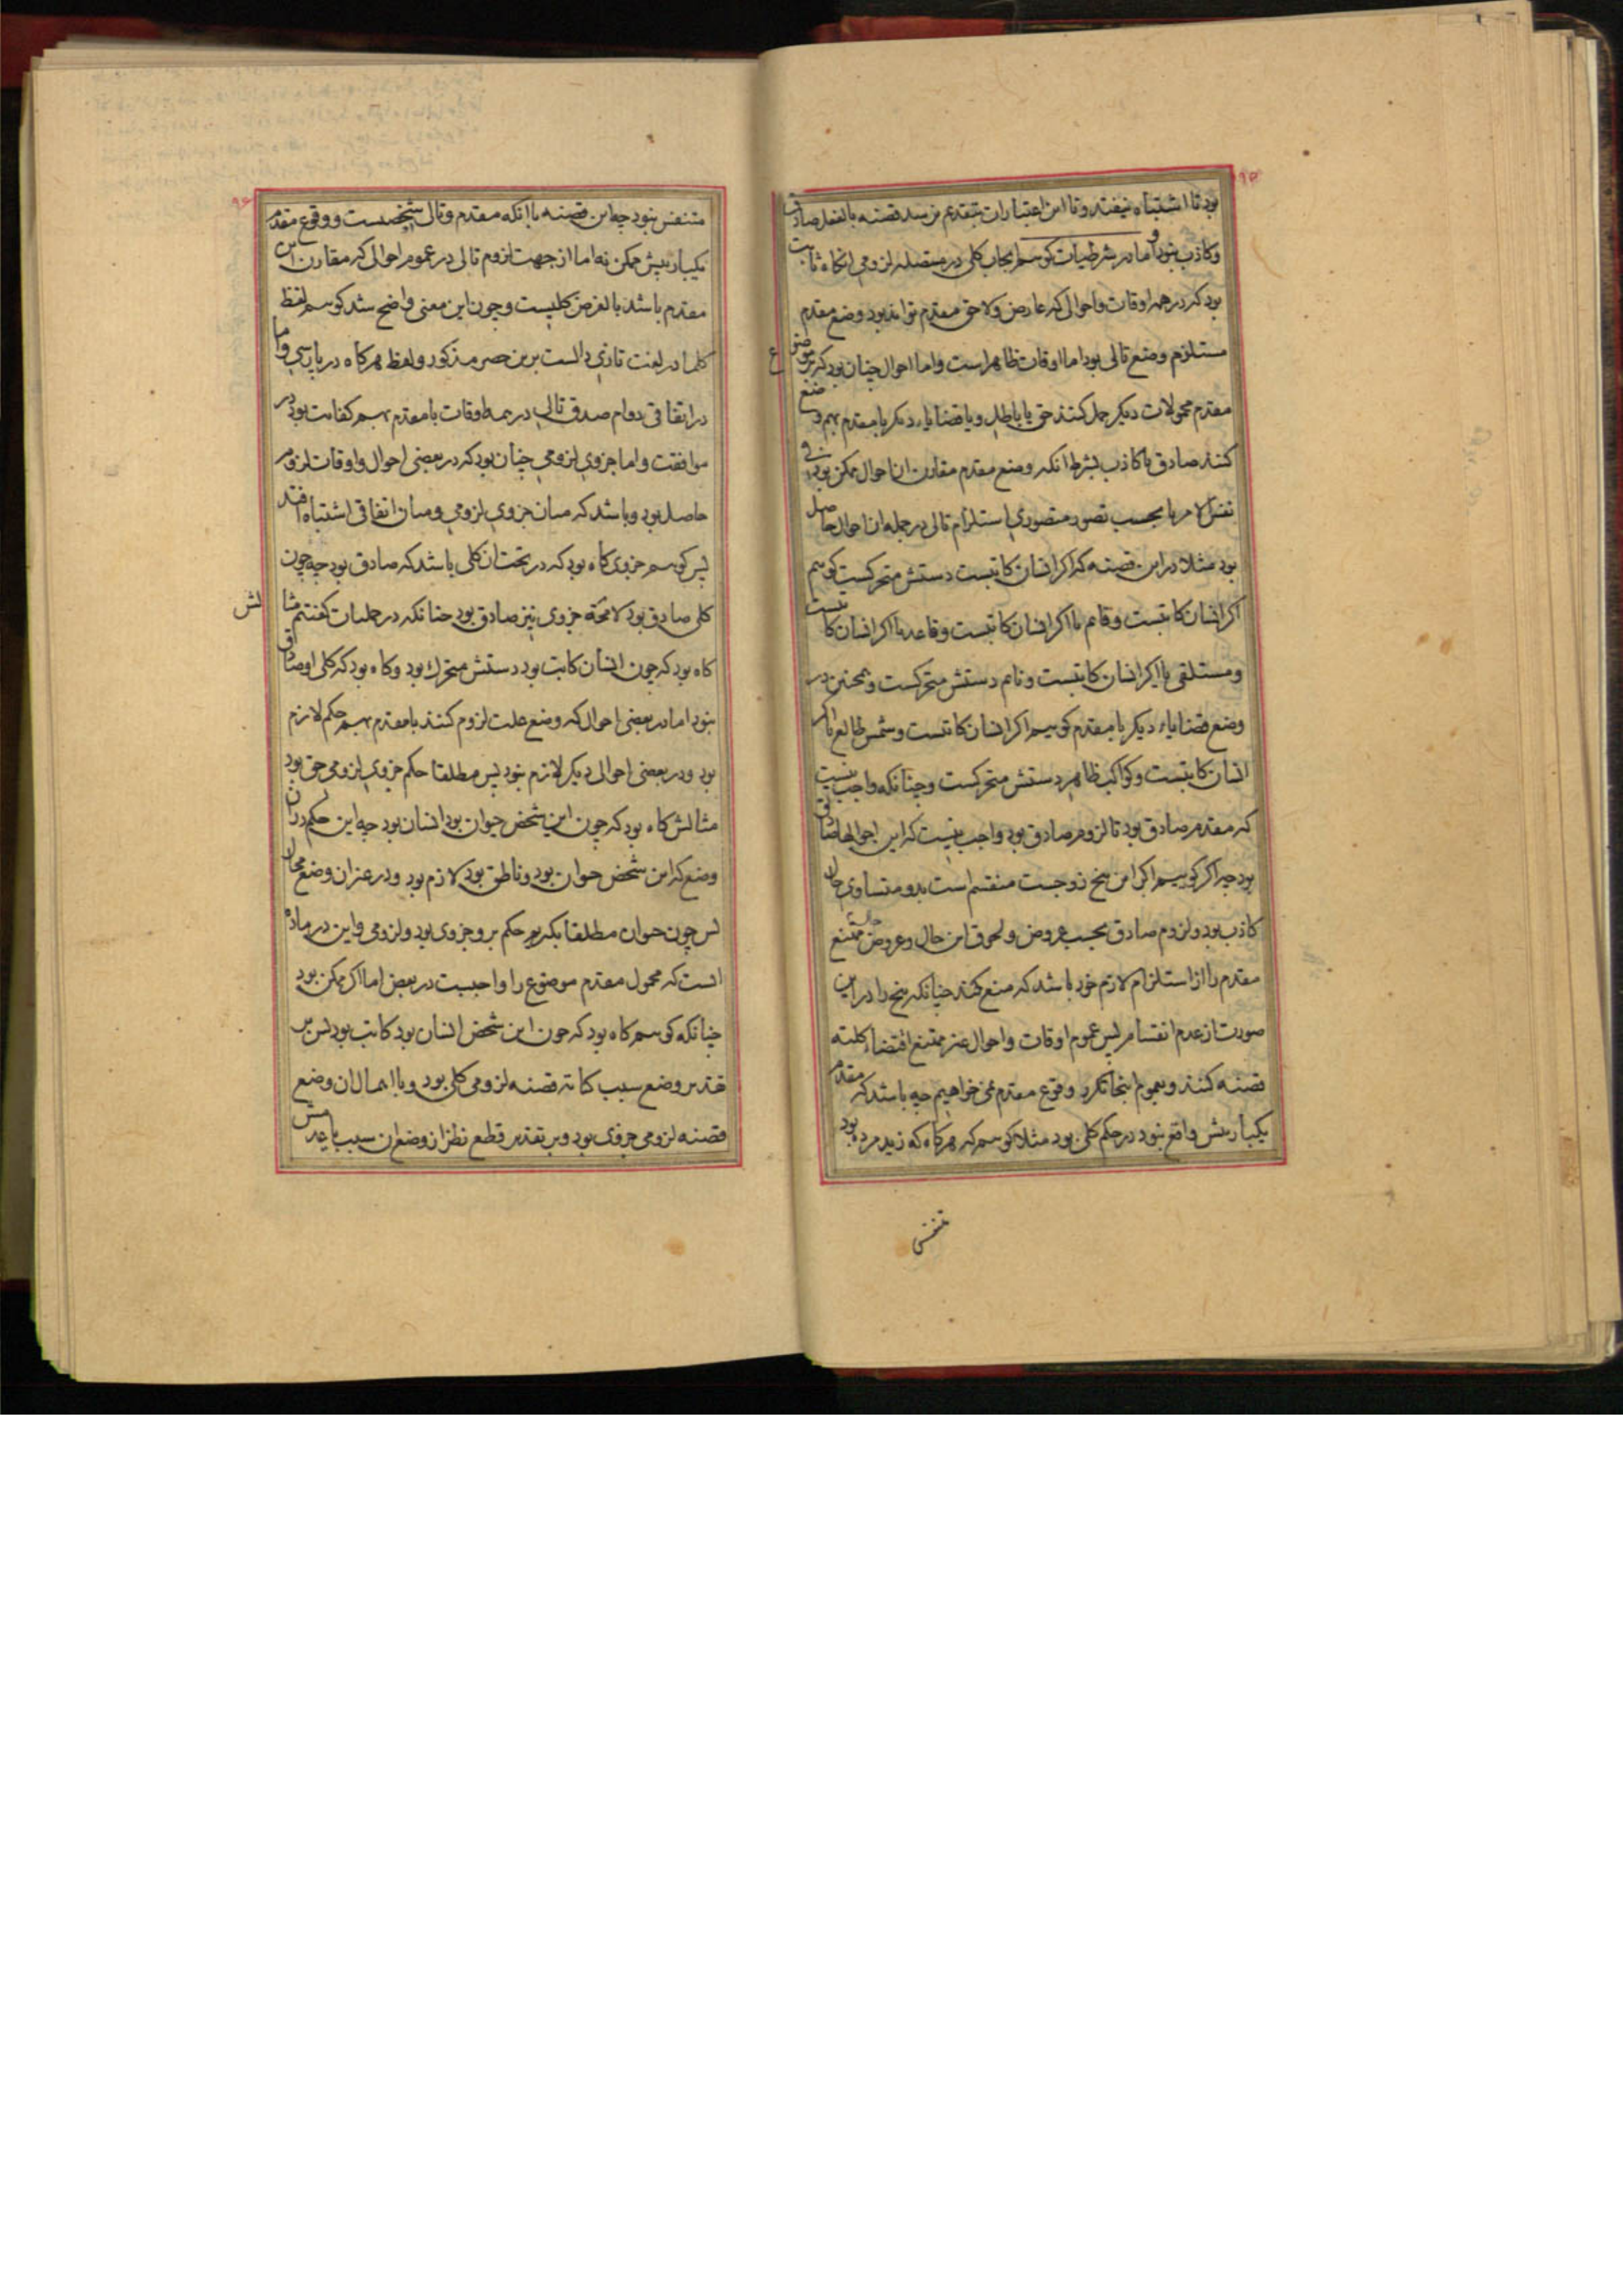 ۹۵
بود تا اشتباه نیفتد و تا این اعتبارات بتقدیم نرسد قضیه بالفعل صادق
و کاذب نبود و اما در شرطیات کوییم ایجاب کلی در متصله لزومی انکاه ثابت
بود که در همه اوقات و احوالی که عارض و لاحق مقدم تواند بود وضع مقدم
مستلزم وضع تالی بود اما اوقات ظاهر است و اما احوال چنان بود که بر موضوع
مقدم محمولات دیکر حمل کنند حق یا باطل و یا قضایاء دیکر با مقدم بهم وضع
کنند صادق یا کاذب بشرط انکه وضع مقدم مقارن ان احوال ممکن بود در
نفس الامر یا بحسب تصور متصوری استلزام تالی در جمله ان احوال حاصل
بود مثلا در این قضیه که اکر انسان کاتبست دستش متحرکست کوییم
اکر انسان کاتبست و قایم یا اکر انسان کاتبست و قاعد یا اکر انسان کاتبست
و مستلقی یا اکر انسان کاتبست و نایم دستش متحرکست و همچنین در
وضع قضایاء دیکر با مقدم کوییم اکر انسان کاتبست و شمس طالع یا اکر
انسان کاتبست و کواکب ظاهر دستش متحرکست و چنانکه واجب نیست
که مقدم صادق بود تا لزوم صادق بود واجب نیست که این احوالها صادق
بود چه اکر کوییم اکر این پنج زوجست منقسم است بدو متساوی حال
کاذب بود و لزوم صادق بحسب عروض و لحوق این حال و عروض حالت ممتنع
مقدم را از استلزام لازم خود باشد که منع کند چنانکه پنج را در این
صورت از عدم انقسام پس عموم اوقات و احوال غیر ممتنع اقتضاء کلیت
قضیه کنند و بعموم اینجا تکرر وقوع مقدم نمی خواهیم چه باشد که مقدم
یکبار بیش واقع نبود در حکم کلی بود مثلا کوییم که هرکاه که زید مرده بود
متنفس
۹۶
متنفس نبود چه این قضیه با انکه مقدم و تالی شخصیست و وقوع مقدم
یکبار بیش ممکن نه اما از جهت لزوم تالی در عموم احوالی که مقارن این
مقدم باشد بالفرض کلیست و چون این معنی واضح شد کوییم لفظ
کلما در لغت تازی دالست برین حصر مذکور و لفظ هرکاه در پارسی و اما
در اتفاقی دوام صدق تالی در همه اوقات با مقدم بهم کفایت بود در
موافقت و اما جزوی لزومی چنان بود که در بعضی احوال و اوقات لزوم
حاصل بود و باشد که میان جزوی لزومی و میان اتفاقی اشتباه افتد
پس کوییم جزوی کاه بود که در تحت ان کلی باشد که صادق بود چه چون
کلی صادق بود لا محاله جزوی نیز صادق بود چنانکه در حملیات کفتیم مثالش
کاه بود که چون انسان کاتب بود دستش متحرک بود و کاه بود که کلی او صادق
نبود اما در بعضی احوال که وضع علت لزوم کنند با مقدم بهم حکم لازم
بود و در بعضی احوال دیکر لازم نبود پس مطلقا حکم جزوی لزومی حق بود
مثالش کاه بود که چون این شخص حیوان بود انسان بود چه این حکم در ان
وضع که این شخص حیوان بود و ناطق بود لازم بود و در غیر ان وضع محال
پس چون حیوان مطلقا بکیریم حکم برو جزوی بود و لزومی و این در ماده
ایست که محمول مقدم موضوع را واجبست در بعض اما اکر ممکن بود
چنانکه کوییم کاه بود که چون این شخص انسان بود کاتب بود پس بر
تقدیر وضع سبب کتابه قضیه لزومی کلی بود و با اهمال ان وضع
قضیه لزومی جزوی بود و بر تقدیر قطع نظر از وضع ان سبب یا عدمش